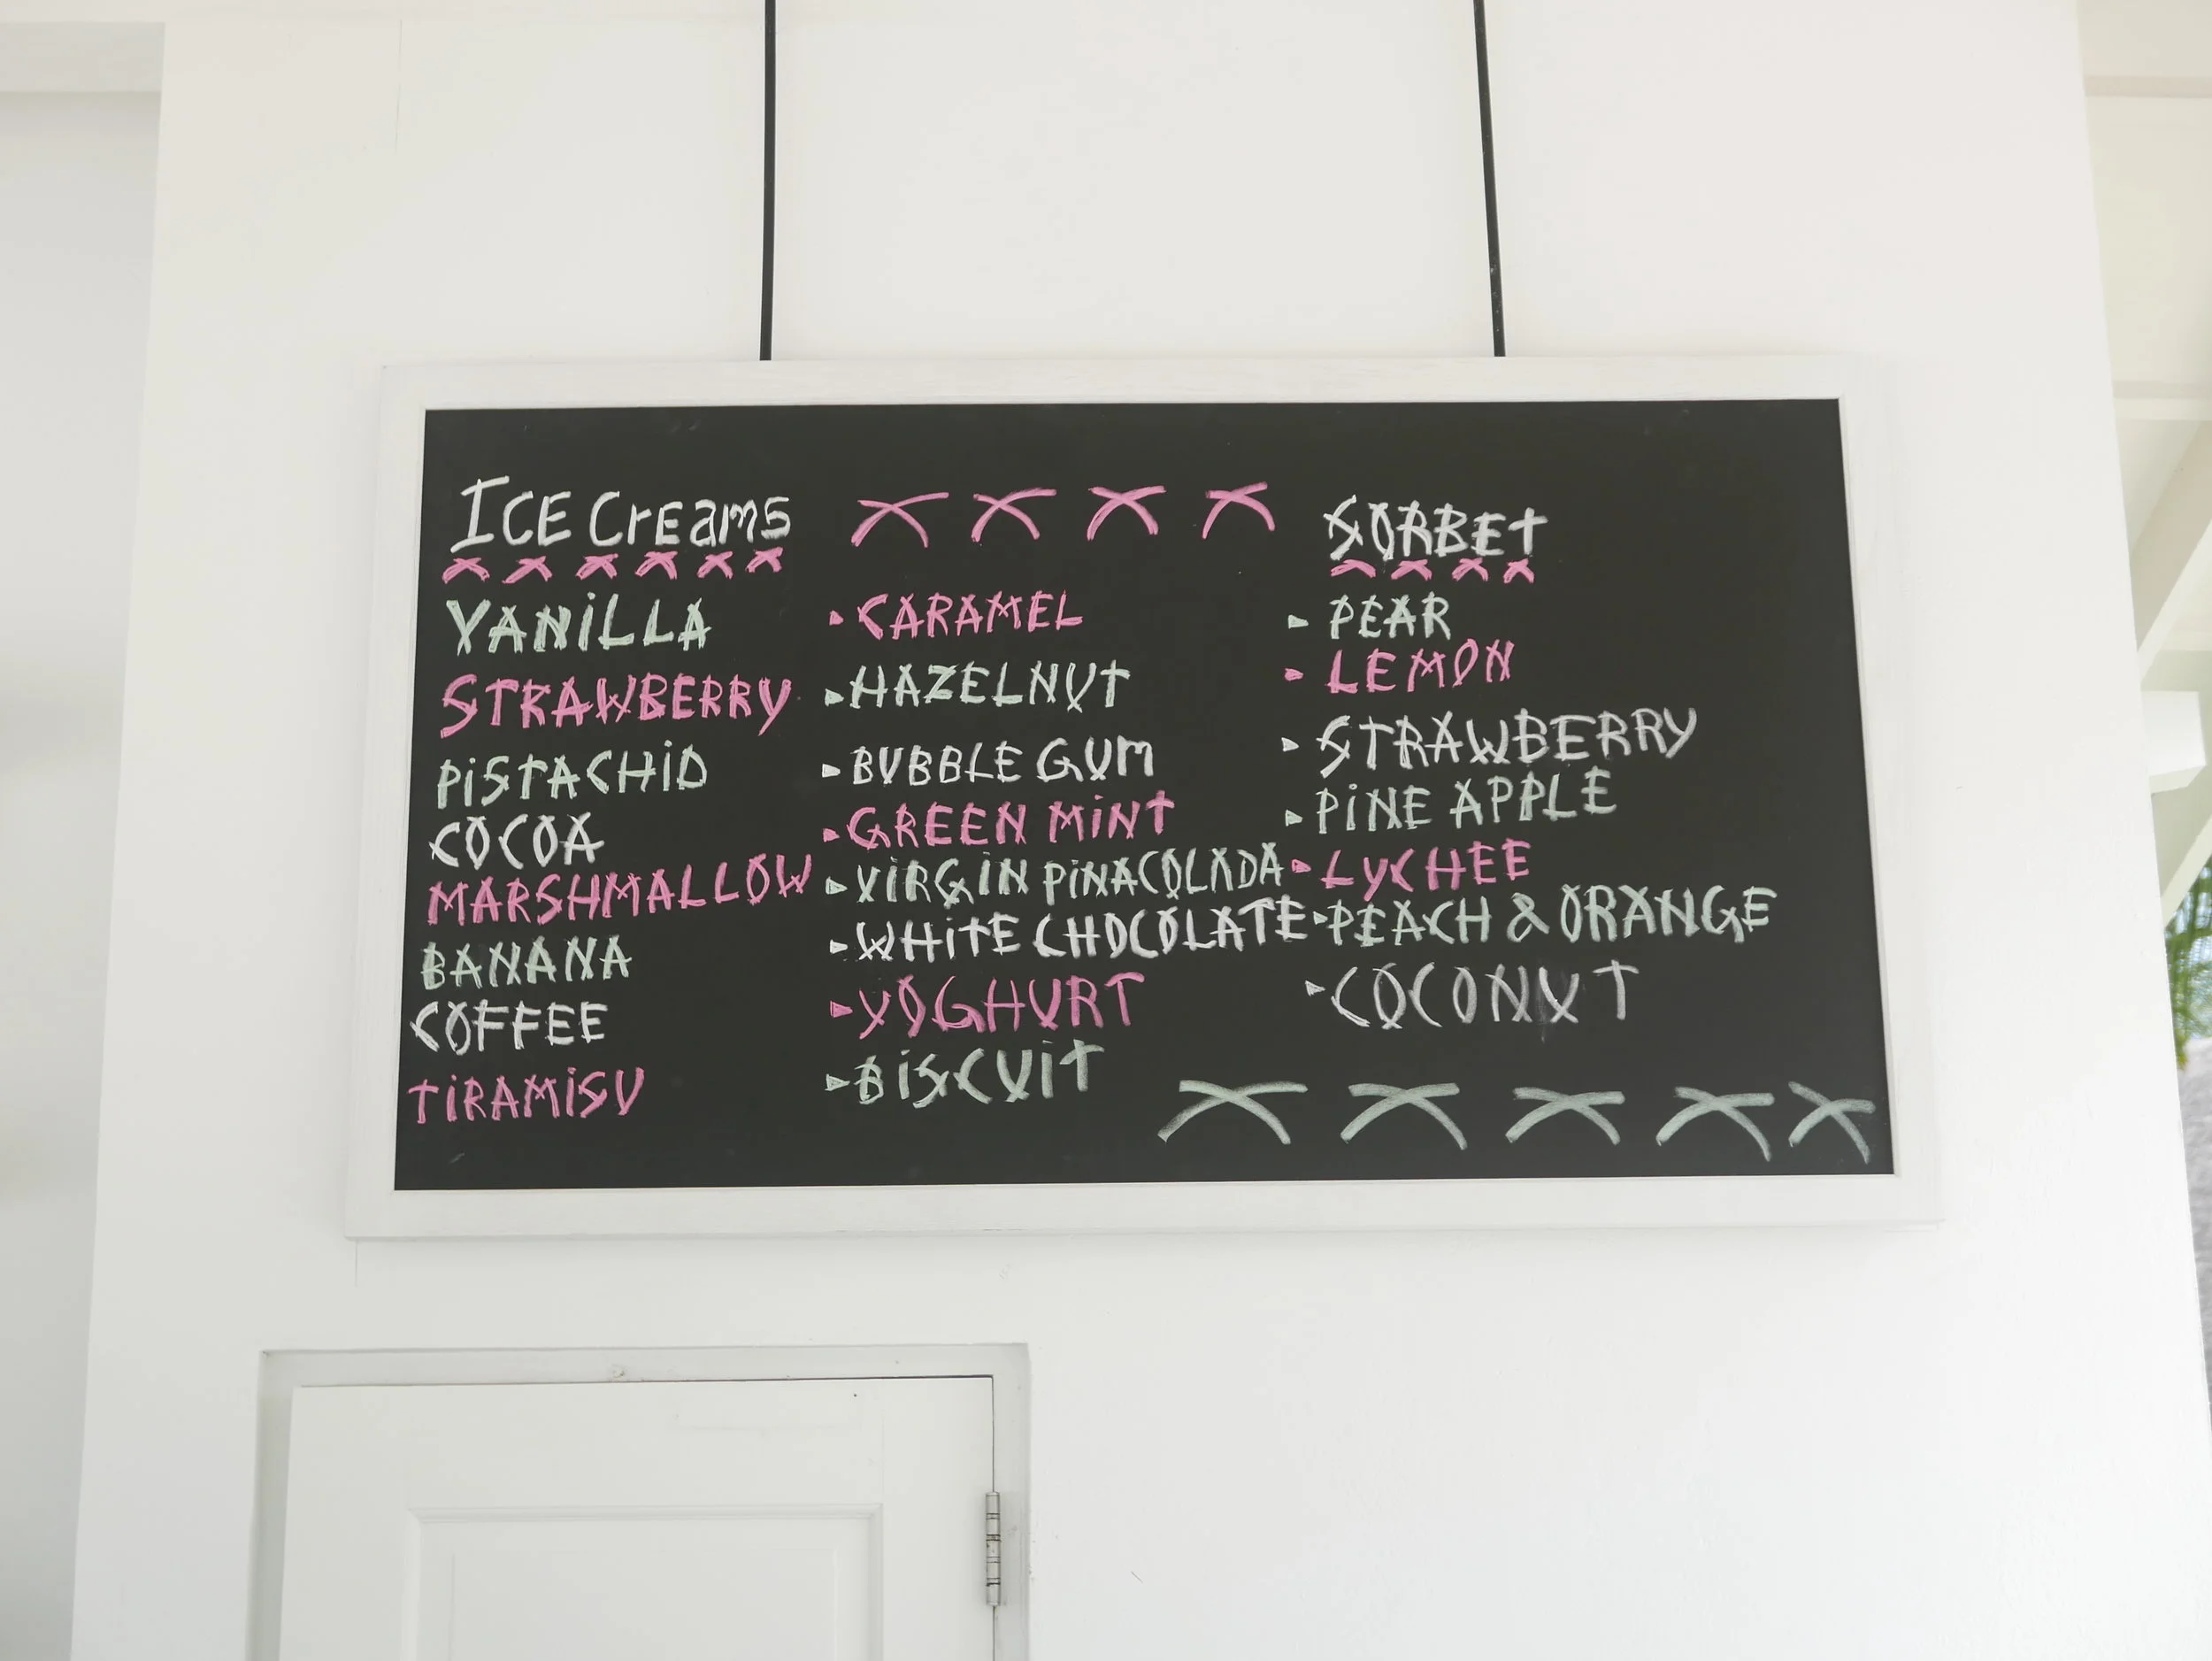 ICE Creams
VANiLLA
STRAWBERRY
PiSTACHiO
COCOA
MARSHMALLOW
BANANA
COFFEE
TiRAMiSU
CARAMEL
HAZELNUT
BUBBLE GUM
GREEN MiNT
ViRGiN PiNACOLADA
WHiTE CHOCOLATE
YOGHURT
BiSCUiT
SORBET
PEAR
LEMON
STRAWBERRY
PiNE APPLE
LYCHEE
PEACH & ORANGE
COCONUT